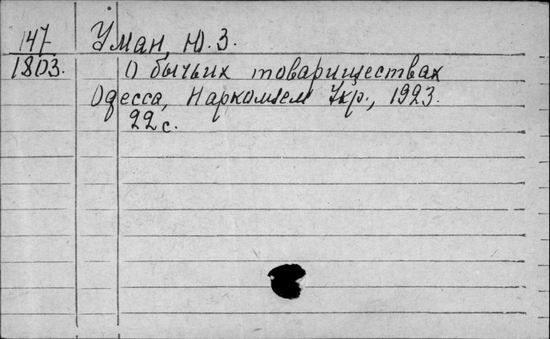 147
1803.
Уман, Ю. З.
О бычьих товариществах
Одесса, Наркомзем Укр., 1923.
22 с.